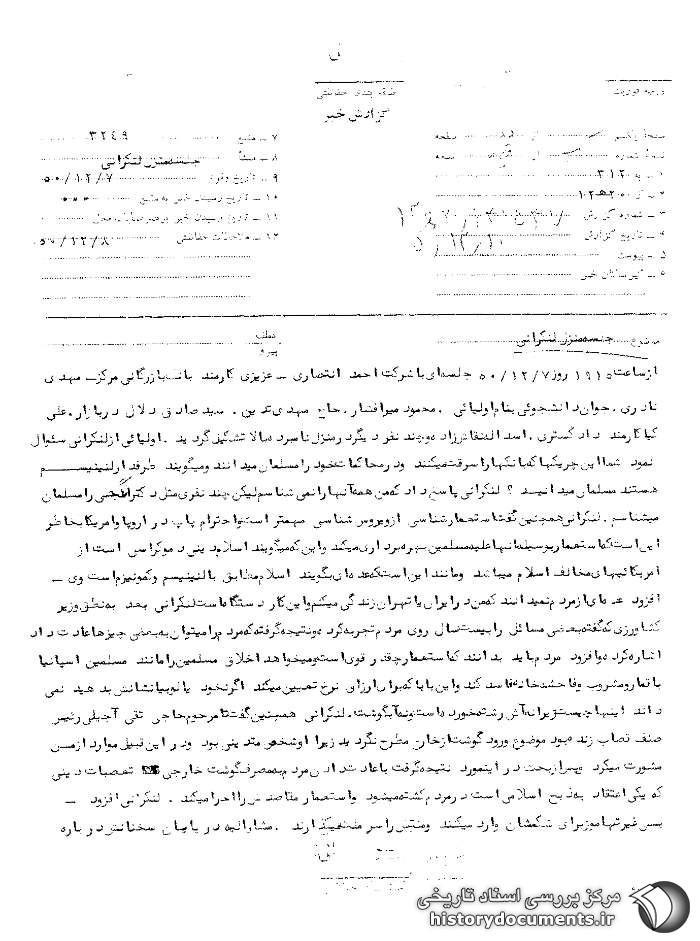 طبقه بندی حفاظتی
گزارش خبر
۷ ـ منبع ۳۲۴۹
۸ ـ منشأ جلسه منزل لنکرانی
۹ ـ تاریخ وقوع ۵۰/۱۲/۷
۱۰ ـ تاریخ رسیدن خبر به منبع
۱۱ ـ تاریخ رسیدن خبر
۱۲ ـ ملاحظات حفاظتی ۵۰/۱۲/۸
۱ ـ به ۳۱۲
۲ ـ از
۳ ـ شماره گزارش
۴ ـ تاریخ گزارش
۵ ـ پیوست
۶ ـ گیرندگان خبر
موضوع جلسه منزل لنکرانی
عطف
پیرو
از ساعت ۱۹۱۵ روز ۵۰/۱۲/۷ جلسه‌ای با شرکت احمد انتصاری ـ عزیزی کارمند بانک بازرگانی مرکز ـ مهدی
نادری، جوان دانشجوئی بنام اولیائی، محمود میرافشار، حاج مهدی سید صادق دلال در بازار، علی
کیا کارمند دادگستری، اسداله نقاش زاده و چند نفر دیگر در منزل نامبرده بالا تشکیل گردید. اولیائی از لنکرانی سئوال
نمود شما این چریکها که بانکها را سرقت میکنند و در محاکمات خود را مسلمان میدانند و میگویند طرفدار لنینیسم
هستند مسلمان میدانید؟ لنکرانی پاسخ داد که من همه آنها را نمی شناسم لیکن چند نفری مثل دکتر را مسلمان
میشناسم. لنکرانی همچنین گفت استعمار شناسی از ویروس شناسی مهمتر است و احترام پاپ در اروپا و امریکا بخاطر
این است که استعمار بوسیله آنها علیه مسلمین بهره برداری میکند و این که میگویند اسلام دین دموکراسی است از
آمریکائیهای مخالف اسلام میباشد و مانند این است که عده‌ای بگویند اسلام مطابق با لنینیسم و کمونیزم است وی ـ
افزود عده‌ای از مردم نمیدانند که من در ایران یا تهران زندگی میکنم و این کار دستگاه است لنکرانی بعد به نطق وزیر
کشاورزی که گفته بعضی مسائل را بیست سال روی مردم تجربه کرده و نتیجه گرفته که مردم را میتوان به بعضی چیزها عادت داد
اشاره کرد و افزود مردم باید بدانند که استعمار چقدر قوی است و میخواهد اخلاق مسلمین را مانند مسلمین اسپانیا
با قمار و مشروب و فاحشه خانه فاسد کند و این بابا که برای ارزاق نرخ تعیین میکند اگر نخود یا لوبیا نشانش بدهید نمی
داند اینها چیست زیرا نه آش رشته خورده است و نه آبگوشت، لنکرانی همچنین گفت تا مرحوم حاجی تقی آجیلی رئیس
صنف قصاب زنده بود موضوع ورود گوشت از خارج مطرح نگردید زیرا او شخص متدینی بود و در این قبیل موارد از من
مشورت میکرد وپس از بحث در اینمورد نتیجه گرفت با عادت دادن مردم به مصرف گوشت خارجی تعصبات دینی
که یکی اعتقاد به ذبح اسلامی است در مردم کشته میشود و استعمار مقاصدش را اجرا میکند. لنکرانی افزود ـ
بی غیرتها موز برای شکمشان وارد میکنند و منتش را سر ملت میگذارند. مشارالیه در پایان سخنانش درباره
مرکز بررسی اسناد تاریخی
historydocuments.ir